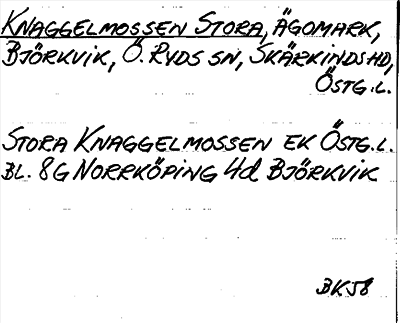 KNAGGELMOSSEN STORA, ÄGOMARK,
BJÖRKVIK, Ö. RYDS SN, SKÄRKINDS HD,
ÖSTG. L.
STORA KNAGGELMOSSEN EK ÖSTG. L.
BL. 8G NORRKÖPING 4d BJÖRKVIK
BK58